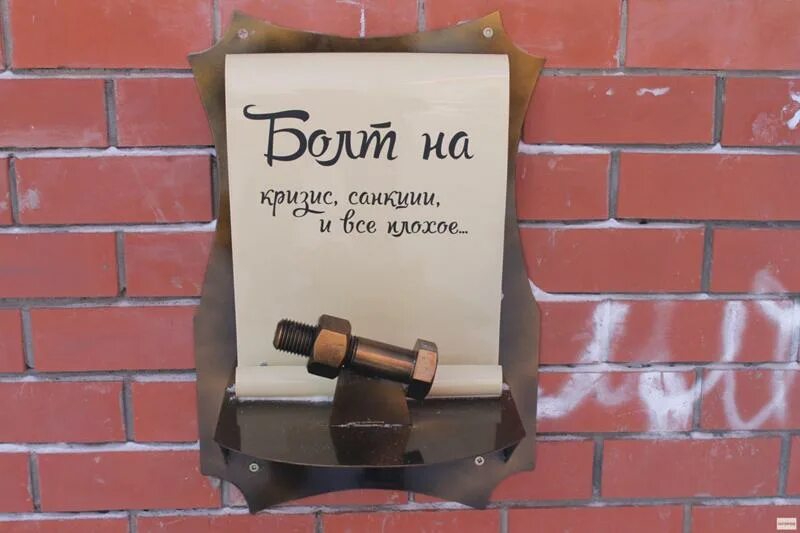 Болт на
кризис, санкции,
и все плохое...